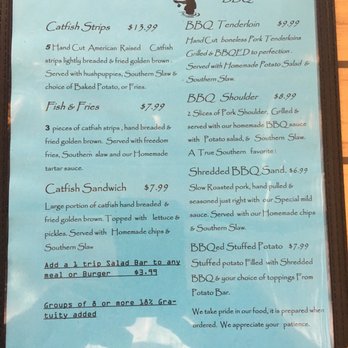 BBQ
Catfish Strips $13.99
5 Hand Cut American Raised Catfish
strips lightly breaded & fried golden brown.
Served with hushpuppies, Southern Slaw &
choice of Baked Potato, or Fries.
Fish & Fries $7.99
3 pieces of catfish strips, hand breaded &
fried golden brown. Served with freedom
fries, Southern slaw and our Homemade
tartar sauce.
Catfish Sandwich $7.99
Large portion of catfish hand breaded &
fried golden brown. Topped with lettuce &
pickles, Served with Homemade chips &
Southern Slaw
Add a 1 trip Salad Bar to any
meal or Burger $3.99
Groups of 8 or more 18% Gra-
tuity added
BBQ Tenderloin $9.99
Hand Cut boneless Pork Tenderloins
Grilled & BBQED to perfection.
Served with Homemade Potato Salad &
Southern Slaw.
BBQ Shoulder $8.99
2 Slices of Pork Shoulder, Grilled &
served with our homemade BBQ sauce
with Potato salad, & Southern Slaw.
A True Southern favorite!
Shredded BBQ Sand. $6.99
Slow Roasted pork, hand pulled &
seasoned just right with our Special mild
sauce. Served with our Homemade chips
& Southern Slaw.
BBQed Stuffed Potato $7.99
Stuffed potato Filled with Shredded
BBQ & your choice of toppings From
Potato Bar.
We take pride in our food, it is prepared when
ordered. We appreciate your patience.